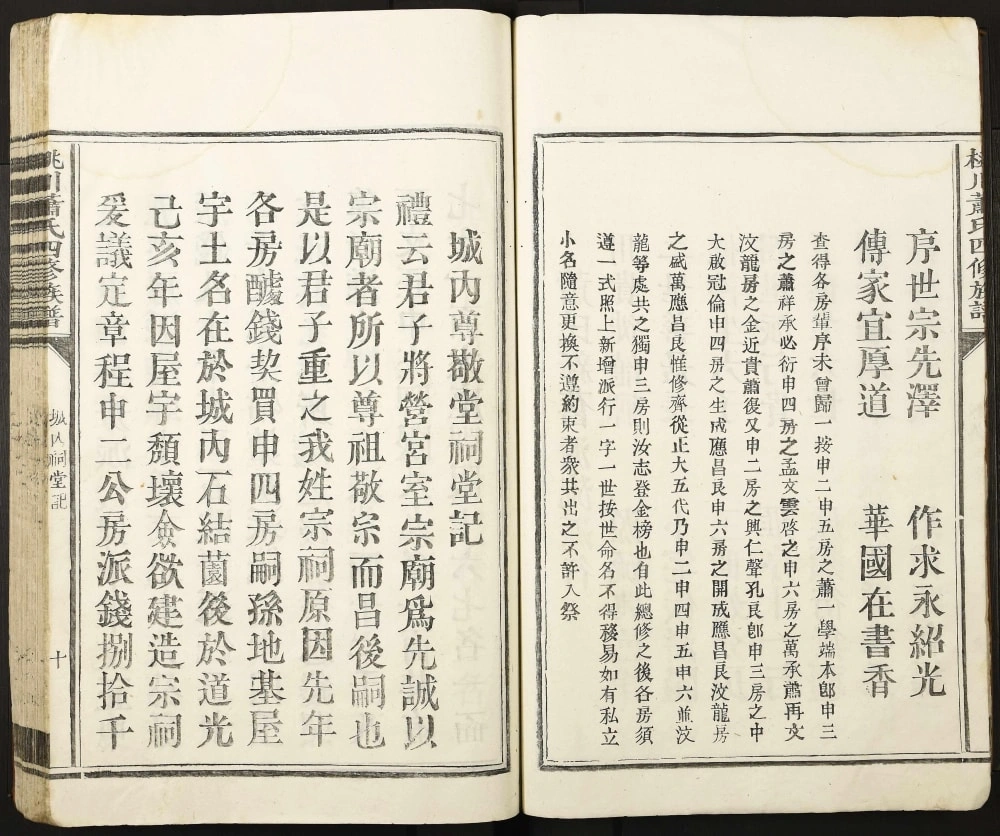 桃川蕭氏四修族譜
序世宗先澤 作求永紹光
傳家宜厚道 華國在書香
查得各房輩序未曾歸一按申二申五房之蕭一學端本郎申三
房之蕭祥承必衍申四房之孟文雲啓之申六房之萬承蕭再文
汶龍房之金近貴蕭後又申二房之興仁聲孔良郎申三房之中
大啟冠倫申四房之生成應昌良申六房之開成應昌良汶龍房
之盛萬應昌良惟修齊從止大五代乃申二申四申五申六並汶
龍等處共之獨申三房則汝志登金榜也自此總修之後各房須
遵一式照上新增派行一字一世按世命名不得移易如有私立
小名隨意更換不遵約束者衆共出之不許入祭
城內尊敬堂祠堂記
禮云君子將營宮室宗廟爲先誠以
宗廟者所以尊祖敬宗而昌後嗣也
是以君子重之我姓宗祠原因先年
各房醵錢契買申四房嗣孫地基屋
宇土名在於城內石結薗後於道光
己亥年因屋宇頹壞僉欲建造宗祠
爰議定章程申二公房派錢捌拾千
桃川蕭氏四修族譜
城內祠堂記
十